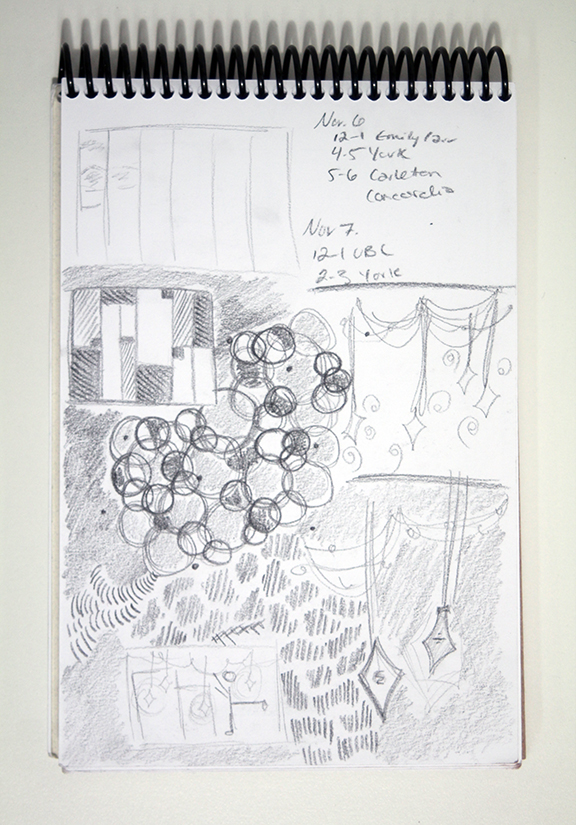 Nov. 6
12-1 Emily Carr
4-5 York
5-6 Carleton
Concordia
Nov 7.
12-1 UBC
2-3 York